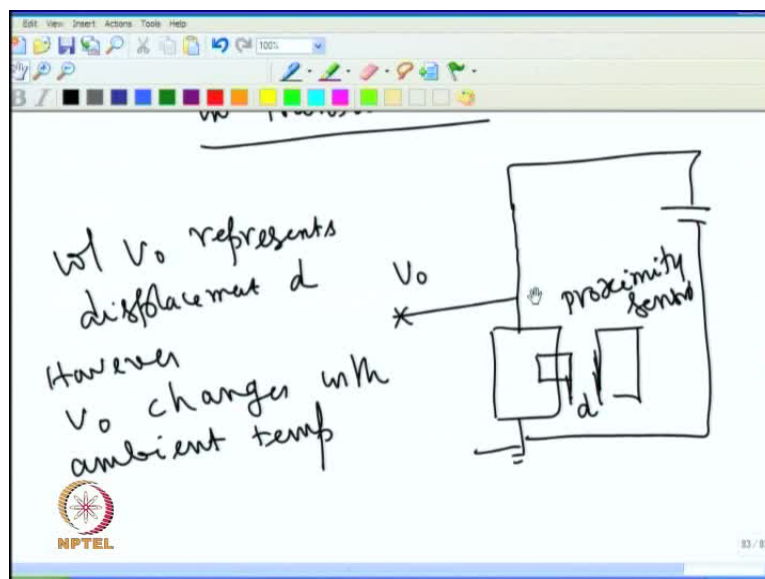 Edit View Insert Actions Tools Help
100%
w/ Vo represents
displacemat d
However
Vo changes with
ambient temp
Vo
proximity
sensor
d
NPTEL
83/8